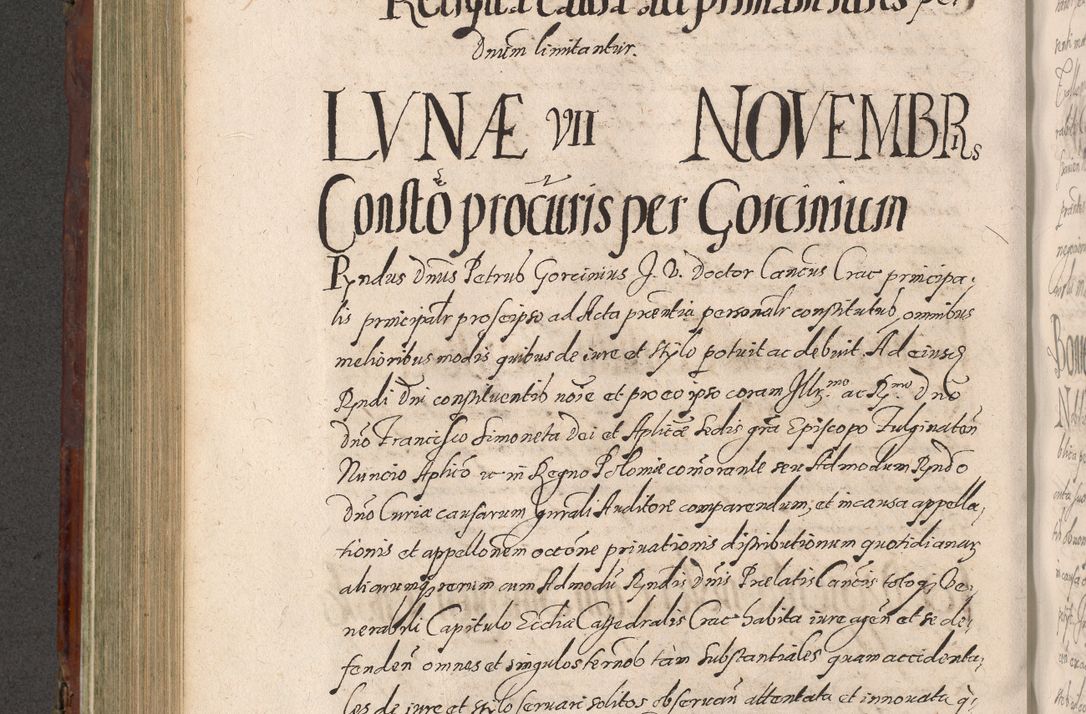 Reliqua causa ad primam iuris per
Dnum limitantur.
LVNÆ VII NOVEMBRs
Constõ procuris per Gorcinium
Rndus Dnus Petrus Gorcinius J. V. Doctor Cancus Crac principa,
lis principalr pro se ipso ad Acta præntia personalr constitutus, omnibus
melioribus modis quibus de iure et stylo potuit ac debuit Ad eiusq
Rndi Dni constituentis noie et pro eo ipso coram Illr.mo ac R.mo Dno
Dno Francisco Simoneta Dei et Aplicæ Sedis gra Episcopo Fulginaten
Nuncio Aplico in Regno Poloniæ comorante seu Admodum Rndo
Dno Curiæ causarum gnrali Auditore comparendum, et in causa appella,
tionis et appellonem occone priuationis distributionum quotidianar
aliarumq rerum cum Admodu Rndis Dnis Prælatis Cancis totoq Ve,
nerabili Capitulo Eccliæ Cathedralis Crac habita iure agen et se de,
fenden omnes et singulos ternos tam substantiales quam accidenta,
les de iure et stylo seruari solitos obseruan attentata et innouata q,